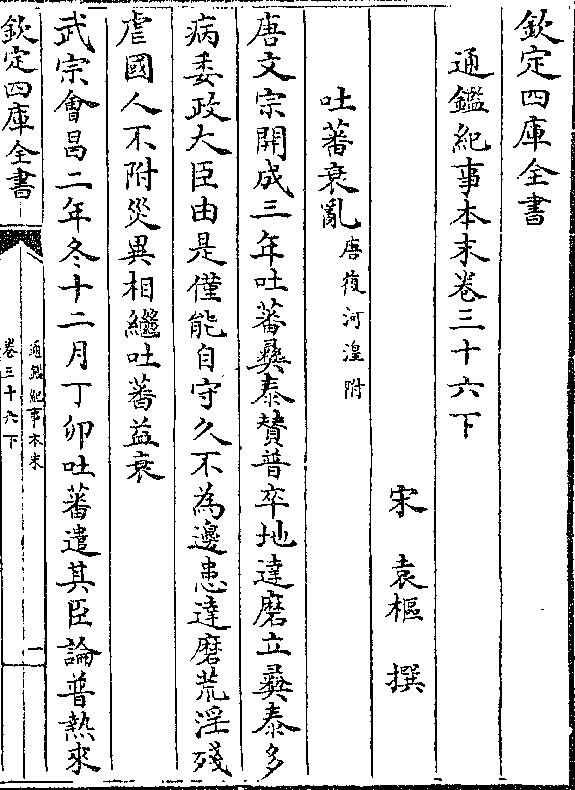 欽定四庫全書
通鑑紀事本末卷三十六下
宋 袁樞 撰
吐蕃衰亂唐復河湟附
唐文宗開成三年吐蕃彞泰贊普卒地達磨立彞泰多
病委政大臣由是僅能自守久不為邊患達磨荒淫殘
虐國人不附災異相繼吐蕃益衰
武宗會昌二年冬十二月丁卯吐蕃遣其臣論普熱來
欽定四庫全書
通鑑紀事本末
卷三十六下
一